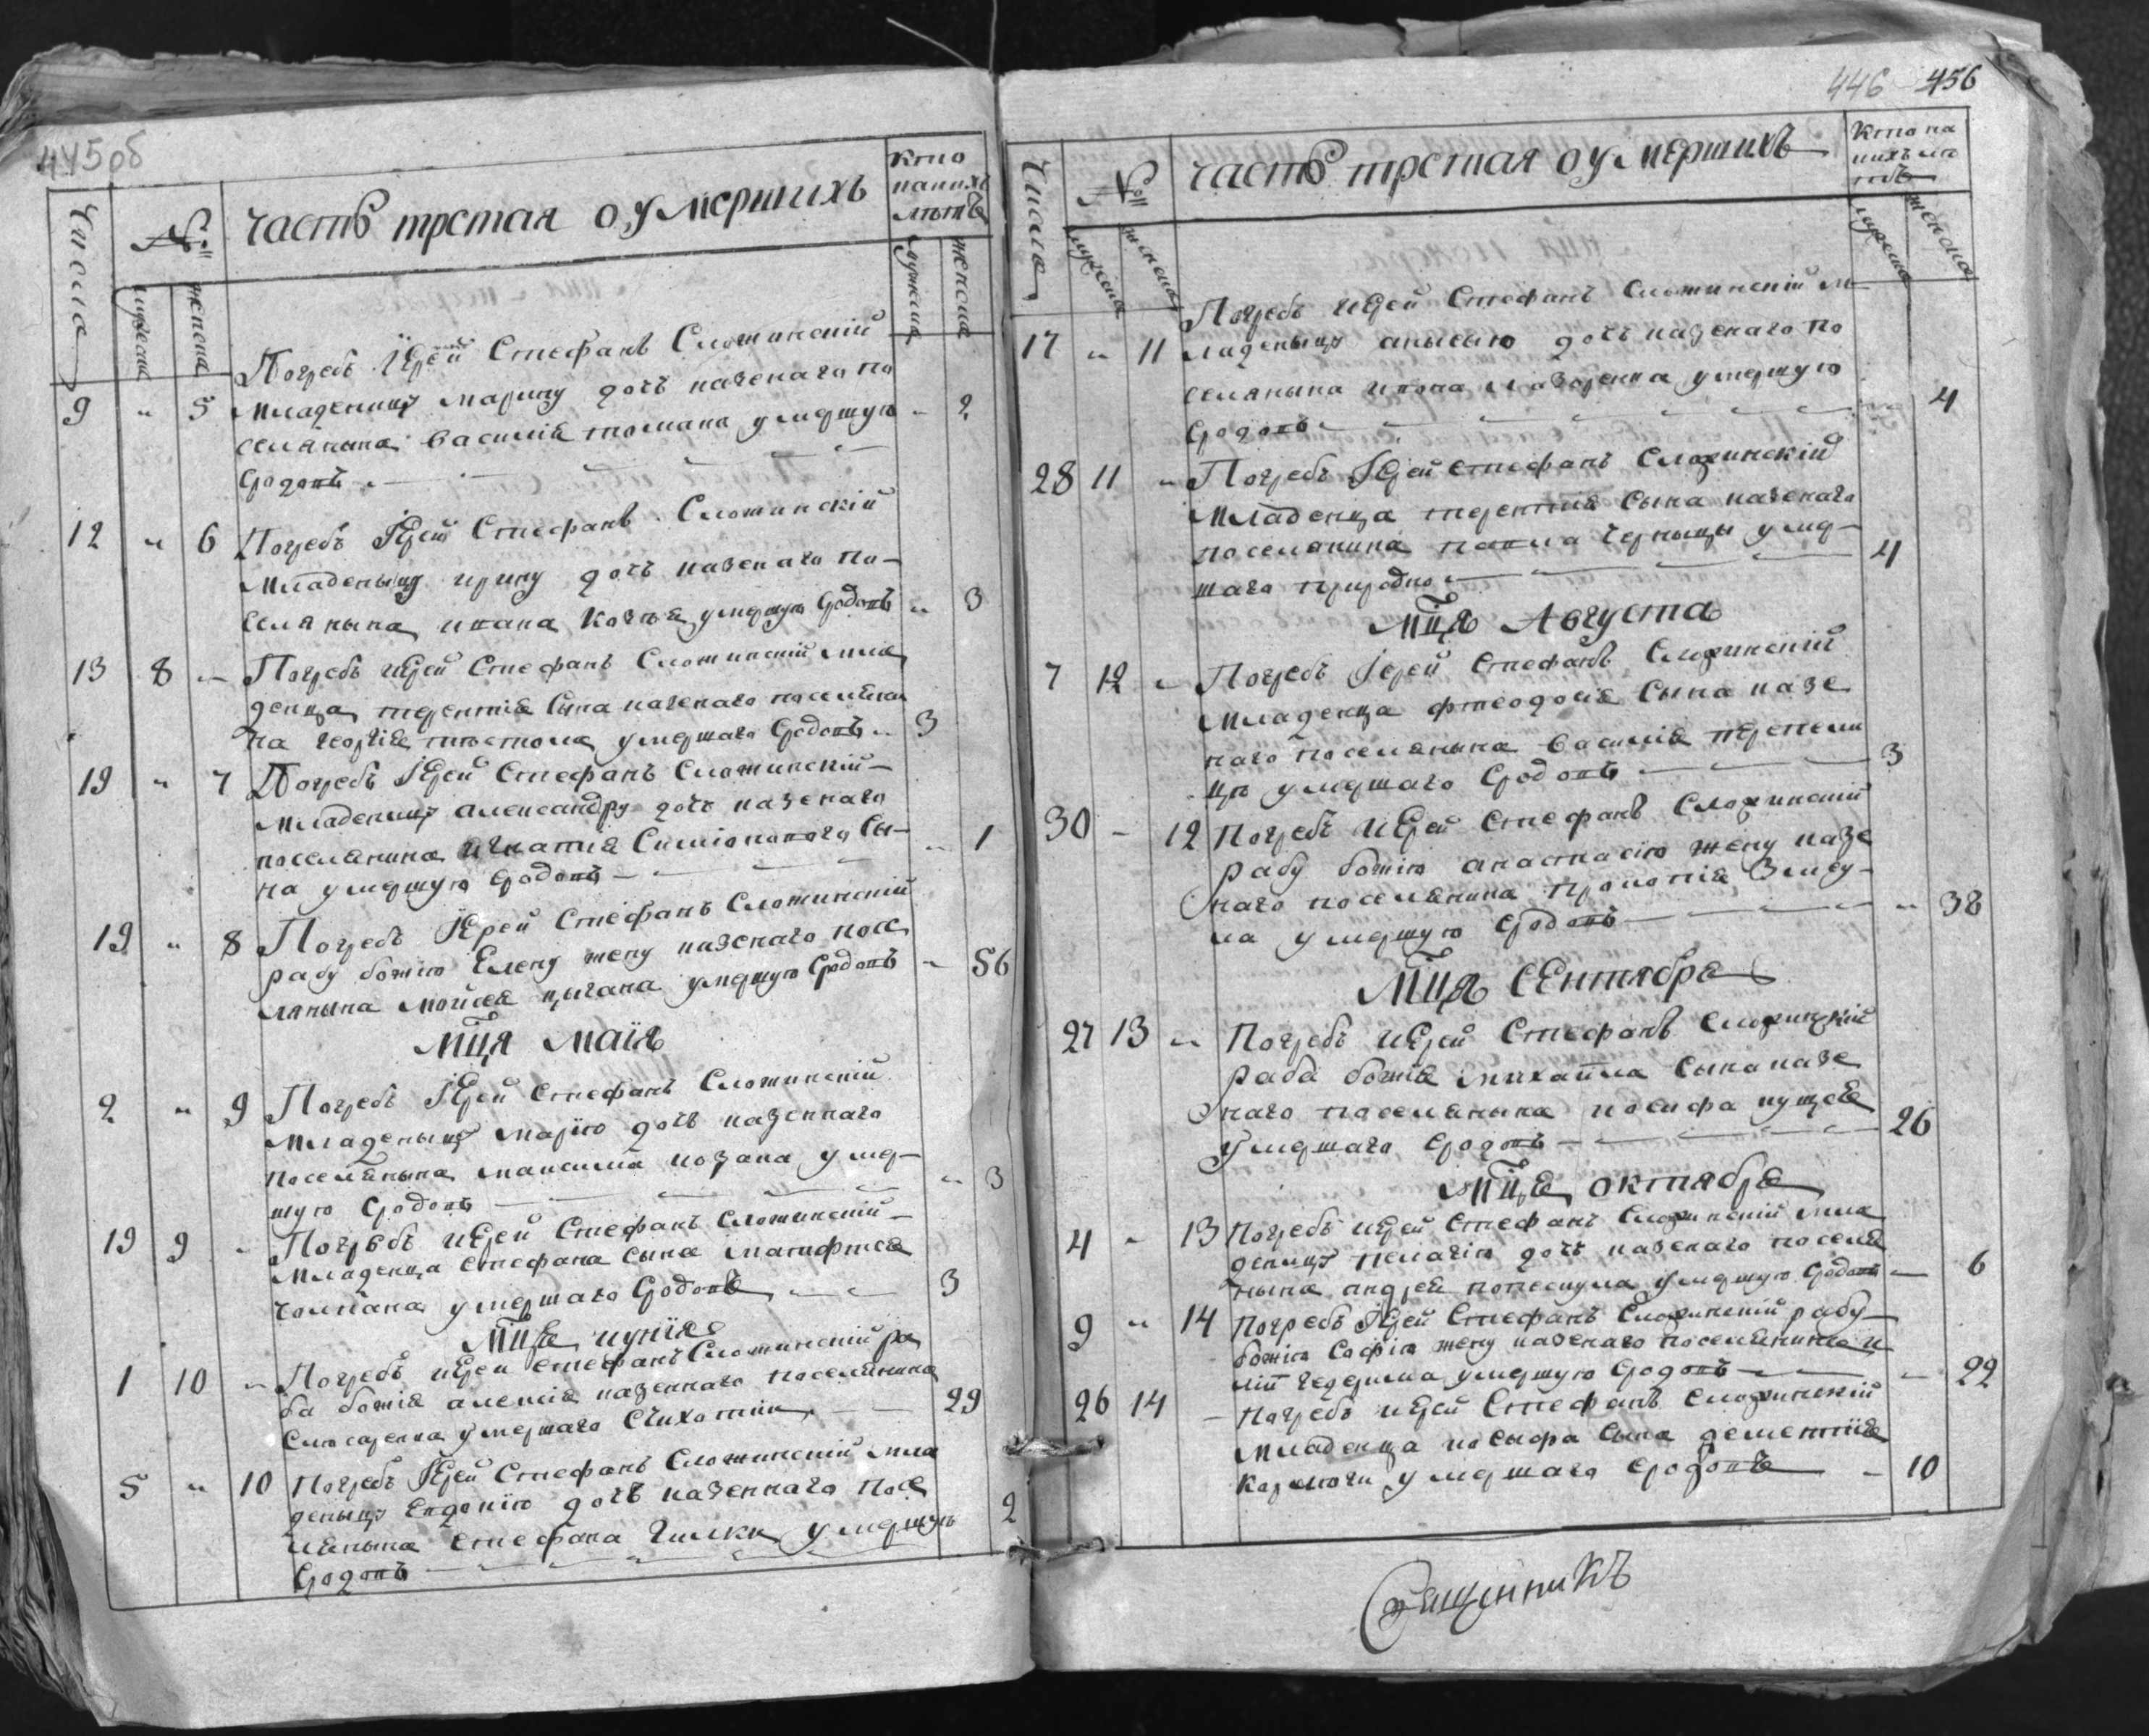 445об
Числа
№
мужеска
женска
Часть третая оумершихъ
кто
какихъ
лѣтъ
мужеска
женска
Погребъ Іерей Стефанъ Сложинскій
9 " 5 младеницу марину дочъ казенаго по
селянина василія томана умершую " 2
Сродовъ
12 " 6 Погребъ Іерей Стефанъ Сложинскій
младеныцу ирину дочъ казенаго по-
селянына ивана умершую Сродовъ " 3
13 8 " Погребъ иерей Стефанъ Сложинскій мла
денца терентія Сына казенаго поселяни
на георгія умершаго Сродовъ " 3
19 " 7 Погребъ Іерей Стефанъ Сложинскій
младеницу александру дочъ казенаго
поселянина игнатия Симіонового Сы- " 1
на умершую Сродовъ
19 " 8 Погребъ Іерей Стефанъ Сложинскій
рабу божію Елену жену казенаго посе
лянына мойсея цыгана умершую Сродовъ " 56
Мца маія
2 " 9 Погребъ Іерей Стефанъ Сложинскій
младеныцу марію дочъ казеннаго
поселянына максима козака умер- " 3
шую Сродовъ
19 9 " Погребъ иерей Стефанъ Сложинскій
младенца Стефана сына матифтея
чолпана умершаго Сродовъ 3
Мца иуніа
1 10 " Погребъ иерей Стефанъ Сложинскій ра
ба божія алексія казеннаго поселянина
Слюсаренка умершаго Счихотки 29
5 " 10 Погребъ Іерей Стефанъ Сложинскій мла
деныцу Евдокію дочъ казеннаго посе
лянына Стефана Гилки умершую 2
Сродовъ
446 456
Числа
№
мужеска
женска
Часть третая оумершихъ
Кто ка
кихъ лѣ
тъ
мужеска
женска
Погребъ иерей Стефанъ Сложинскій м-
17 " 11 ладеныцу анысию дочъ казенаго по
селянына икова умершую 4
Сродовъ
28 11 " Погребъ Іерей Стефанъ Сложинскій
младенца терентія Сына казенаго
поселянина павла черныцы умер- 4
шаго природно
Мца Августа
7 12 " Погребъ Іерей Стефанъ Сложинскій
младенца фтеодосія Сына казе
наго поселянына василія перепели 3
цы умершаго Сродовъ
30 - 12 Погребъ Иерей Стефанъ Сложинскій
рабу божію анастасію жену казе
наго поселянина прокопія Змеу-
ла умершую Сродовъ " 38
Мца Сентября
27 13 " Погребъ иерей Стефанъ Сложинскій
раба божія михаила Сына казе
наго поселянына иосифа куцоя 26
умершаго Сродовъ
Мца октября
4 " 13 Погребъ иерей Стефанъ Сложинскій мла
деницу пелагію дочъ казенаго поселя
нына андрея попескула умершую Сродовъ 6
9 " 14 Погребъ Іерей Стефанъ Сложинскій рабу
божію Софію жену казенаго поселянина и
умершую Сродовъ " 22
26 14 - Погребъ иерей Стефанъ Сложинскій
младенца иосыфа Сына дементія
кармоги умершаго Сродовъ - 10
Священникъ